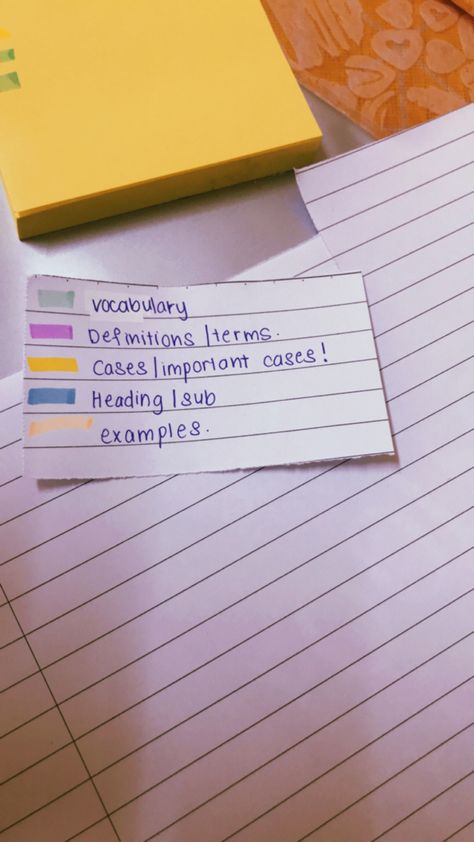 vocabulary
Definitions/terms.
Cases/important cases!
Heading/sub
examples.